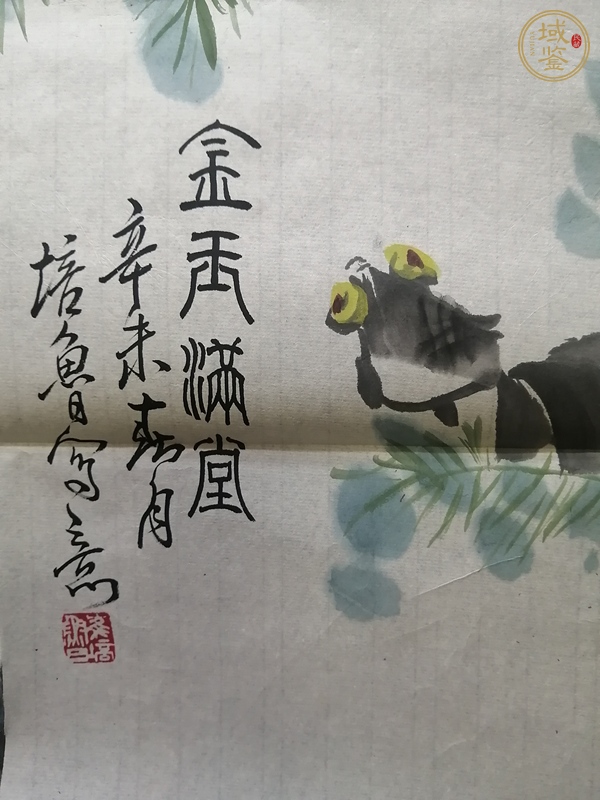 金玉满堂
辛未春月
培鲁写意
域鉴